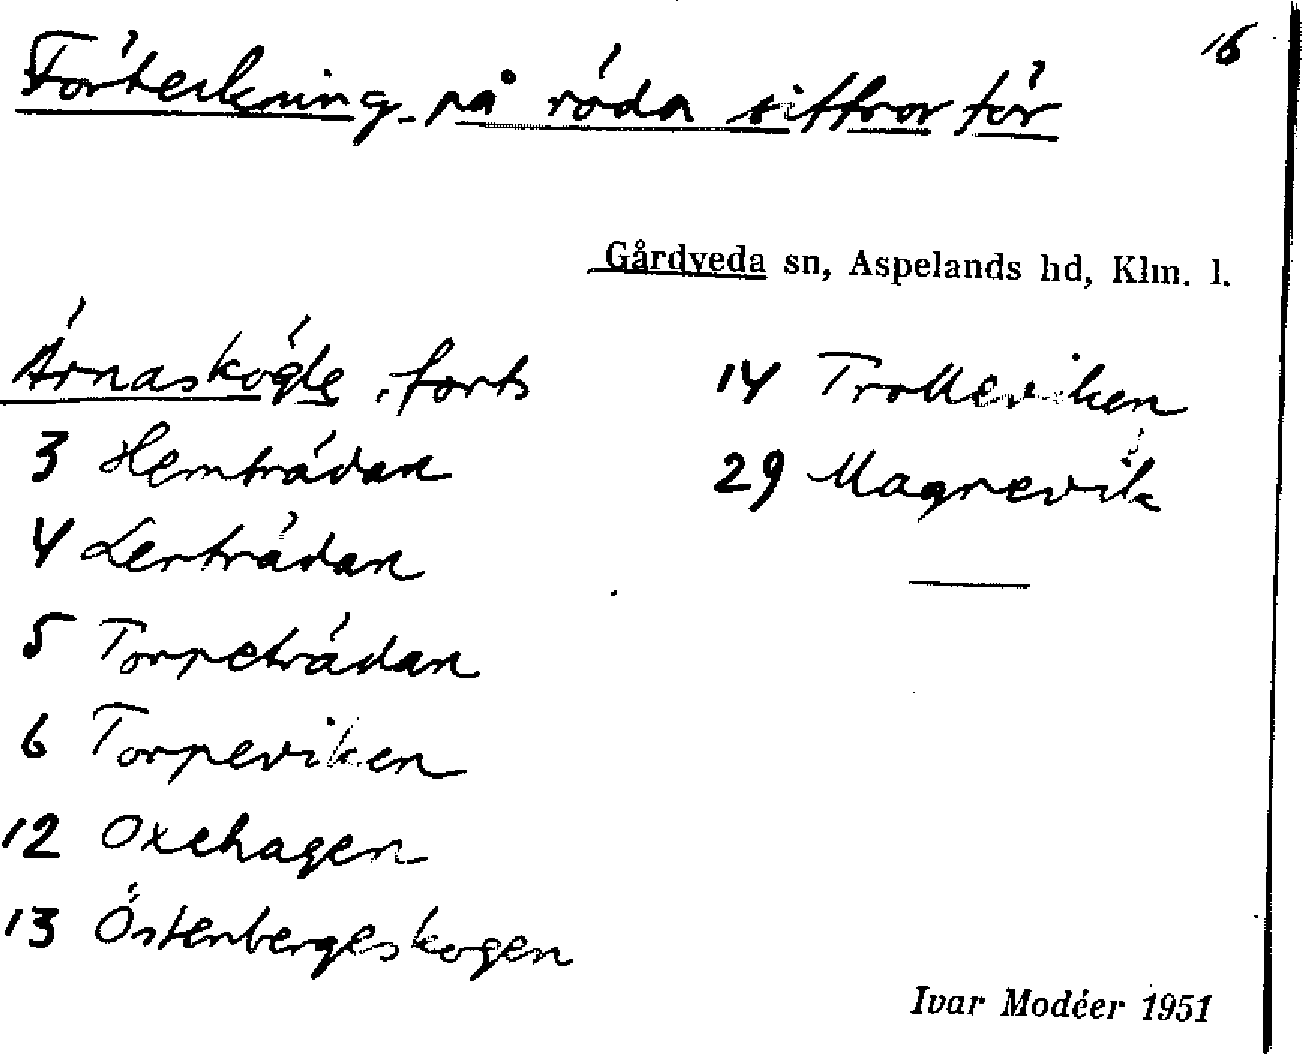 16
Förteckning på röda siffror för
Gårdveda sn, Aspelands hd, Klm. l.
Årnaskögle, forts
3 Hemträdan
4 Lerträdan
5 Torpeträdan
6 Torpeviken
12 Oxehagen
13 Östenbergeskogen
14 Trolleviken
29 Magnevik
Ivar Modéer 1951